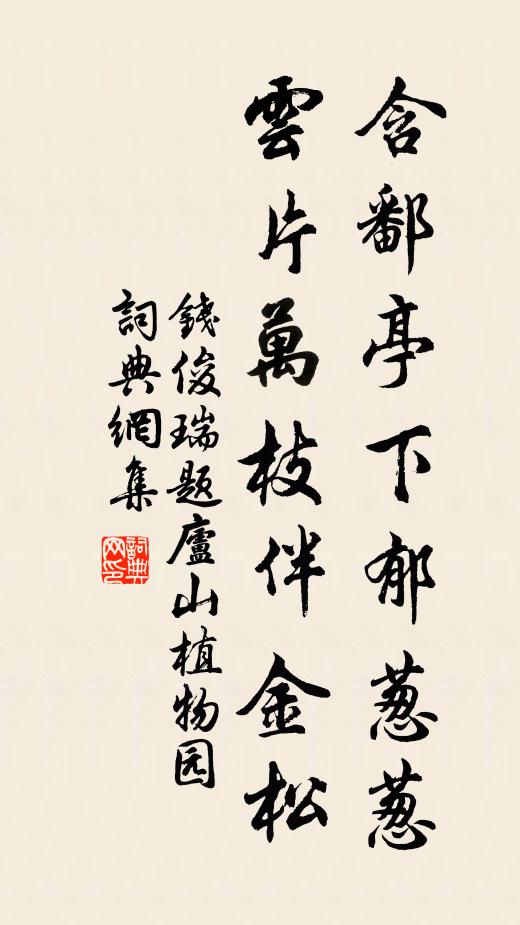 含鄱亭下郁葱葱
雲片萬枝伴金松
錢俊瑞題廬山植物园
詞典網集
詞典网印